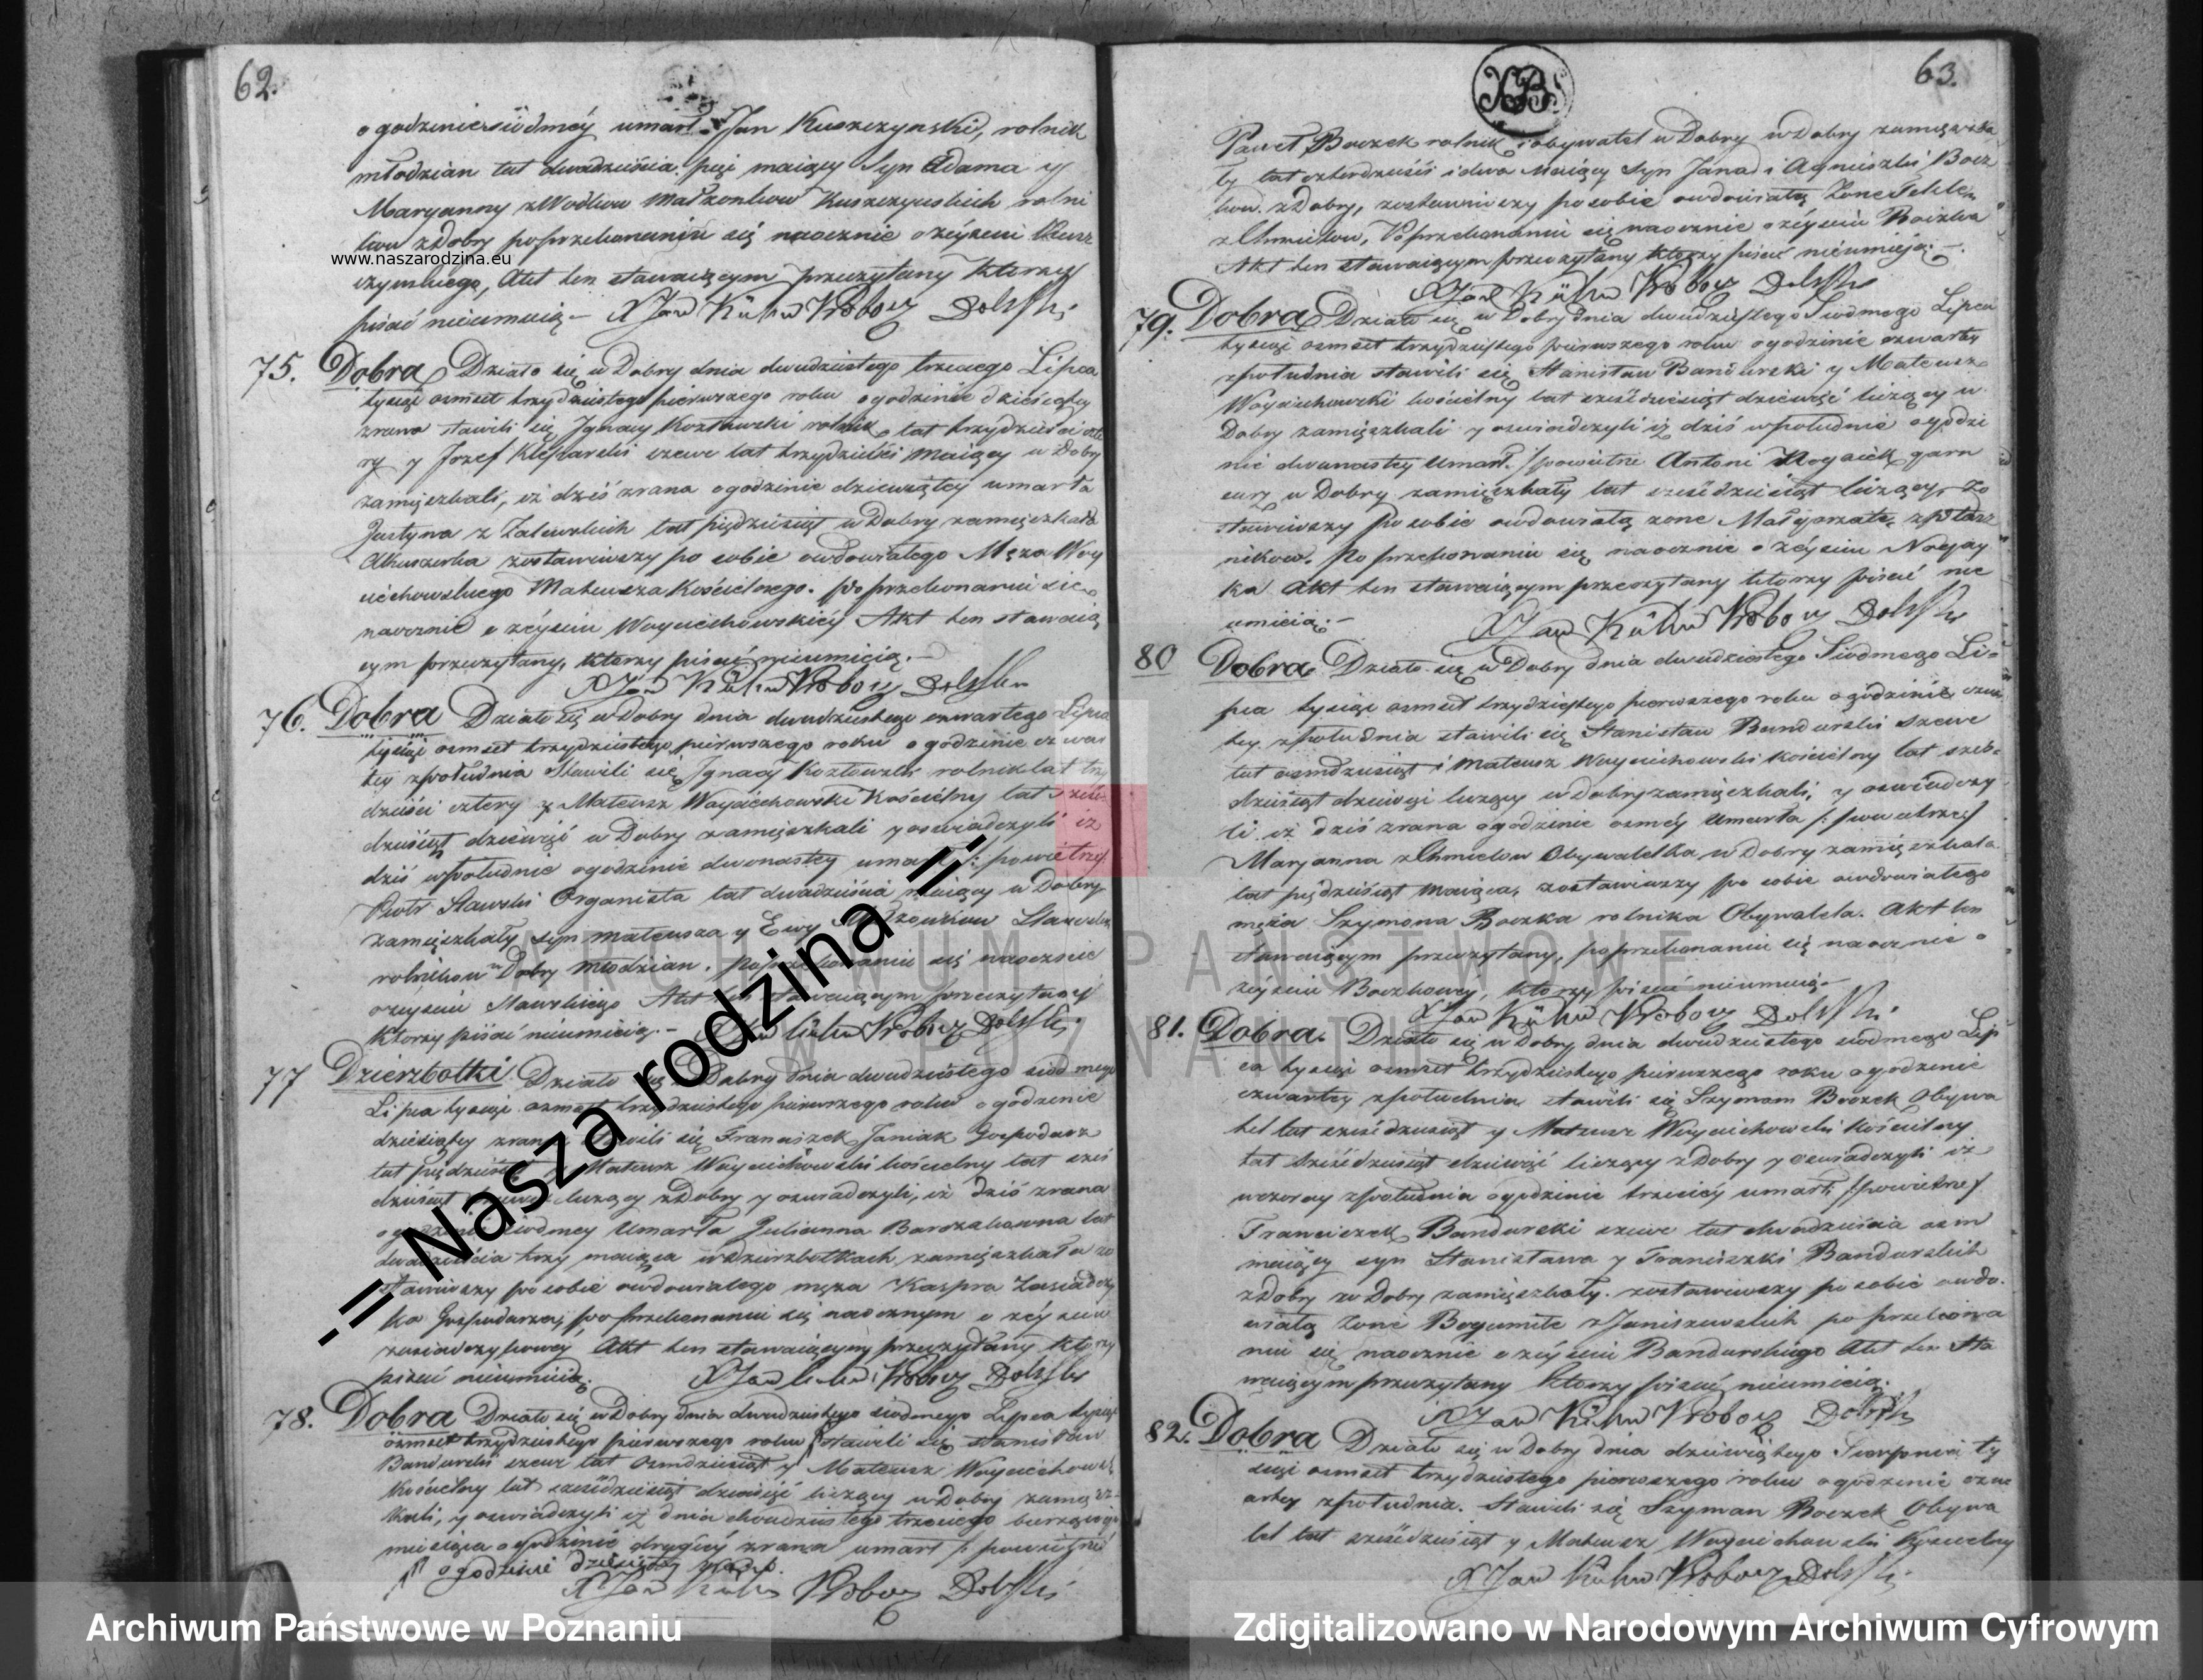 62.
o godzinie siódméy umarł Jan Kuszczynski, rolnik
młodzian lat dwadzieścia pięć maiący Syn Adama y
Maryanny z Wodków Małżonków Kuszczynskich rolni
ków z Dobry po przekonaniu się naocznie o zéyściu Kusz
www.naszarodzina.eu
czynskiego, Akt ten stawaiącym przeczytany którzy
pisać nieumieią – XJan Kühn Probosz Dobrski
75. Dobra Działo się w Dobry dnia dwudziestego trzeciego Lipca
tysiąc osmset trzydziestego pierwszego roku o godzinie dziesiątey
zrana stawili się Ignacy Kozłowski rolnik lat trzydzieści czte
ry y Jozef Kleparski szewc lat trzydzieści maiący w Dobry
zamięszkali, iż dziś zrana o godzinie dziewiątey umarła
Justyna z Zalewskich lat piędziesiąt w Dobry zamięszkała
Akuszerka zostawiwszy po sobie owdowiałego Męża Woy
ciechowskiego Mateusza Kościelnego. po przekonaniu się
naocznie o zéyściu Woyciechowskiéy Akt ten stawaią
cym przeczytany, którzy pisać nieumieią. –
XJan Kühn Probosz Dobrski
76. Dobra Działo się w Dobry dnia dwudziestego czwartego Lipca
tysiąc osmset trzydziestego pierwszego roku o godzinie czwar
tey zpołudnia Stawili się Ignacy Kozłowski rolnik lat trzy
dzieści cztery y Mateusz Woyciechowski Kościelny lat sześć
dziesiąt dziewięć w Dobry zamięszkali y oswiadczyli iż
dziś wpołudnie o godzinie dwonastey umarł /: powietrze/
Piotr Sławski Organista lat dwadzieścia maiący w Dobry
zamięszkały syn Mateusza y Ewy Małżonków Sławskich
rolników w Dobry młodzian. Po przekonaniu się naocznie
o zéyściu Sławskiego Akt ten stawaiącym przeczytany
którzy pisać nieumieią. – XJan Kühn Probosz Dobrski
77 Dzierzbotki Działo się w Dobry dnia dwudziestego siodmego
Lipca tysiąc osmset trzydziestego pierwszego roku o godzinie
dziesiątey zrana stawili się Franciszek Janiak Gospodarz
lat piędziesiąt y Mateusz Woyciechowski kościelny lat sześ
dziesiąt dziewięć liczący z Dobry y oswiadczyli, iż dziś zrana
o godzinie siodmey umarła Julianna Barczakowna lat
dwadzieścia trzy maiąca w Dzierzbotkach zamięszkała zo
stawiwszy po sobie owdowiałego męża Kaspra
ka Gospodarza, po przekonaniu się naocznym o zéyściu
Akt ten stawaiącym przeczytany którzy
pisać nieumieią. XJan Kühn Probosz Dobrski
78. Dobra Działo się w Dobry dnia dwudziestego siodmego Lipca tysiąc
osmset trzydziestego pierwszego roku stawili się Stanisław
Bandurski szewc lat osmdziesiąt y Mateusz Woyciechowski
Kościelny lat sześdziesiąt dziewięć liczący w Dobry zamięsz
kali, y oswiadczyli iż dnia dwudziestego trzeciego bieżącego
miesiąca o godzinie drugiéy zrana umarł /: powietrzné
o godzinie dziesiątey zrana.
XJan Kühn Probosz Dobrski
63.
Paweł Boczek rolnik i obywatel w Dobry w Dobry zamięszka
ły lat czterdzieści i dwa maiący Syn Jana i Agnieszki Bocz
ków z Dobry, zostawiwszy po sobie owdowiałą Żone Teklę
z Chmielow, Po przekonaniu się naocznie o zéyściu Boczka
Akt ten stawaiącym przeczytany którzy pisać nieumieją. –
XJan Kühn Probosz Dobrski
79. Dobra Działo się w Dobry dnia dwudziestego Siodmego Lipca
tysiąc osmset trzydziestego pierwszego roku o godzinie czwartey
zpołudnia stawili się Stanisław Bandurski y Mateusz
Woyciechowski kościelny lat sześćdziesiąt dziewięć liczący w
Dobry zamięszkali y oswiadczyli iż dziś wpołudnie o godzi
nie dwunastey umarł /powietrze Antoni Nogaick garn
carz w Dobry zamięszkały lat sześćdziesiąt liczący, zo
stawiwszy po sobie owdowiałą żone Małgorzate z Ptasz
ników. Po przekonaniu się naocznie o zéyściu Nogay
ka Akt ten stawaiącym przeczytany którzy pisać nie
umieią. – XJan Kühn Probosz Dobrski
80 Dobra Działo się w Dobry dnia dwudziestego Siodmego Li=
pca tysiąc osmset trzydziestego pierwszego roku o godzinie czwar
tey zpołudnia stawili się Stanisław Bandurski szewc
lat osmdziesiąt i Mateusz Woyciechowski kościelny lat sześ=
dziesiąt dziewięć liczący w Dobry zamięszkali, y oswiadczy
li iż dziś zrana o godzinie osméy umarła /: powietrze/
Maryanna z Chmielow Obywatelka w Dobry zamięszkała
lat piędziesiąt maiąca, zostawiwszy po sobie owdowiałego
męża Szymona Boczka rolnika Obywatela. Akt ten
stawaiącym przeczytany, po przekonaniu się naocznie o
zéyściu Boczkowéy, którzy pisać nieumieią –
XJan Kühn Probosz Dobrski
81. Dobra. Działo się w Dobry dnia dwudziestego siodmego Lip
ca tysiąc osmset trzydziestego pierwszego roku o godzinie
czwartey zpołudnia stawili się Szymon Boczek Obywa
tel lat sześćdziesiąt y Mateusz Woyciechowski kościelny
lat sześćdziesiąt dziewięć liczący z Dobry y oswiadczyli iż
wczoray zpołudnia o godzinie trzeciéy umarł /:powietrze/
Franciszek Bandurski szewc lat dwadzieścia osm
maiący syn Stanisława y Franciszki Bandurskich
z Dobry w Dobry zamięszkały. zostawiwszy po sobie owdo.
wiałą żone Bogumiłe z Janiszewskich po przekona
niu się naocznie o zéyściu Bandurskiego Akt ten sta
waiącym przeczytany którzy pisać nieumieią.
XJan Kühn Probosz Dobrski
82. Dobra Działo się w Dobry dnia dziewiątego Sierpnia ty
siąc osmset trzydziestego pierwszego roku o godzinie czw
artey zpołudnia. Stawili się Szyman Boczek Obywa
tel lat sześćdziesiąt y Mateusz Woyciechowski Koscielny
XJan Kühn Probosz Dobrski
ARCHIWUM PAŃSTWOWE
W POZNANIU
-= Nasza rodzina =-
Archiwum Państwowe w Poznaniu
Zdigitalizowano w Narodowym Archiwum Cyfrowym